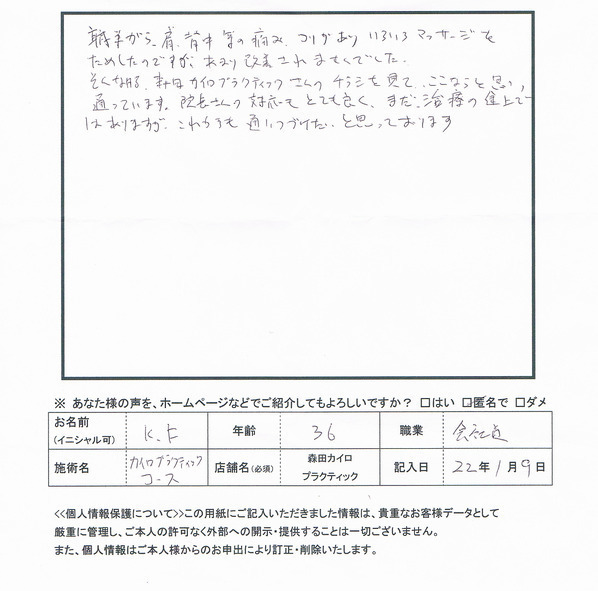 職業がら、肩、背中等の痛み、コリがあり いろいろ マッサージを
ためしたのですが、あまり改善されませんでした。
そんな折、森田カイロプラクティックさんのチラシを見て、ここならと思い、
通っています。院長さんの対応もとても良く、まだ、治療の途上で
はありますが、これからも通いつづけたいと思っております
※ あなた様の声を、ホームページなどでご紹介してもよろしいですか? □はい □匿名で □ダメ
お名前 (イニシャル可) K.F 年齢 36 職業 会社員
施術名 カイロプラクティックコース 店舗名(必須) 森田カイロプラクティック 記入日 22年1月9日
<<個人情報保護について>>この用紙にご記入いただきました情報は、貴重なお客様データとして
厳重に管理し、ご本人の許可なく外部への開示・提供することは一切ございません。
また、個人情報はご本人様からのお申出により訂正・削除いたします。